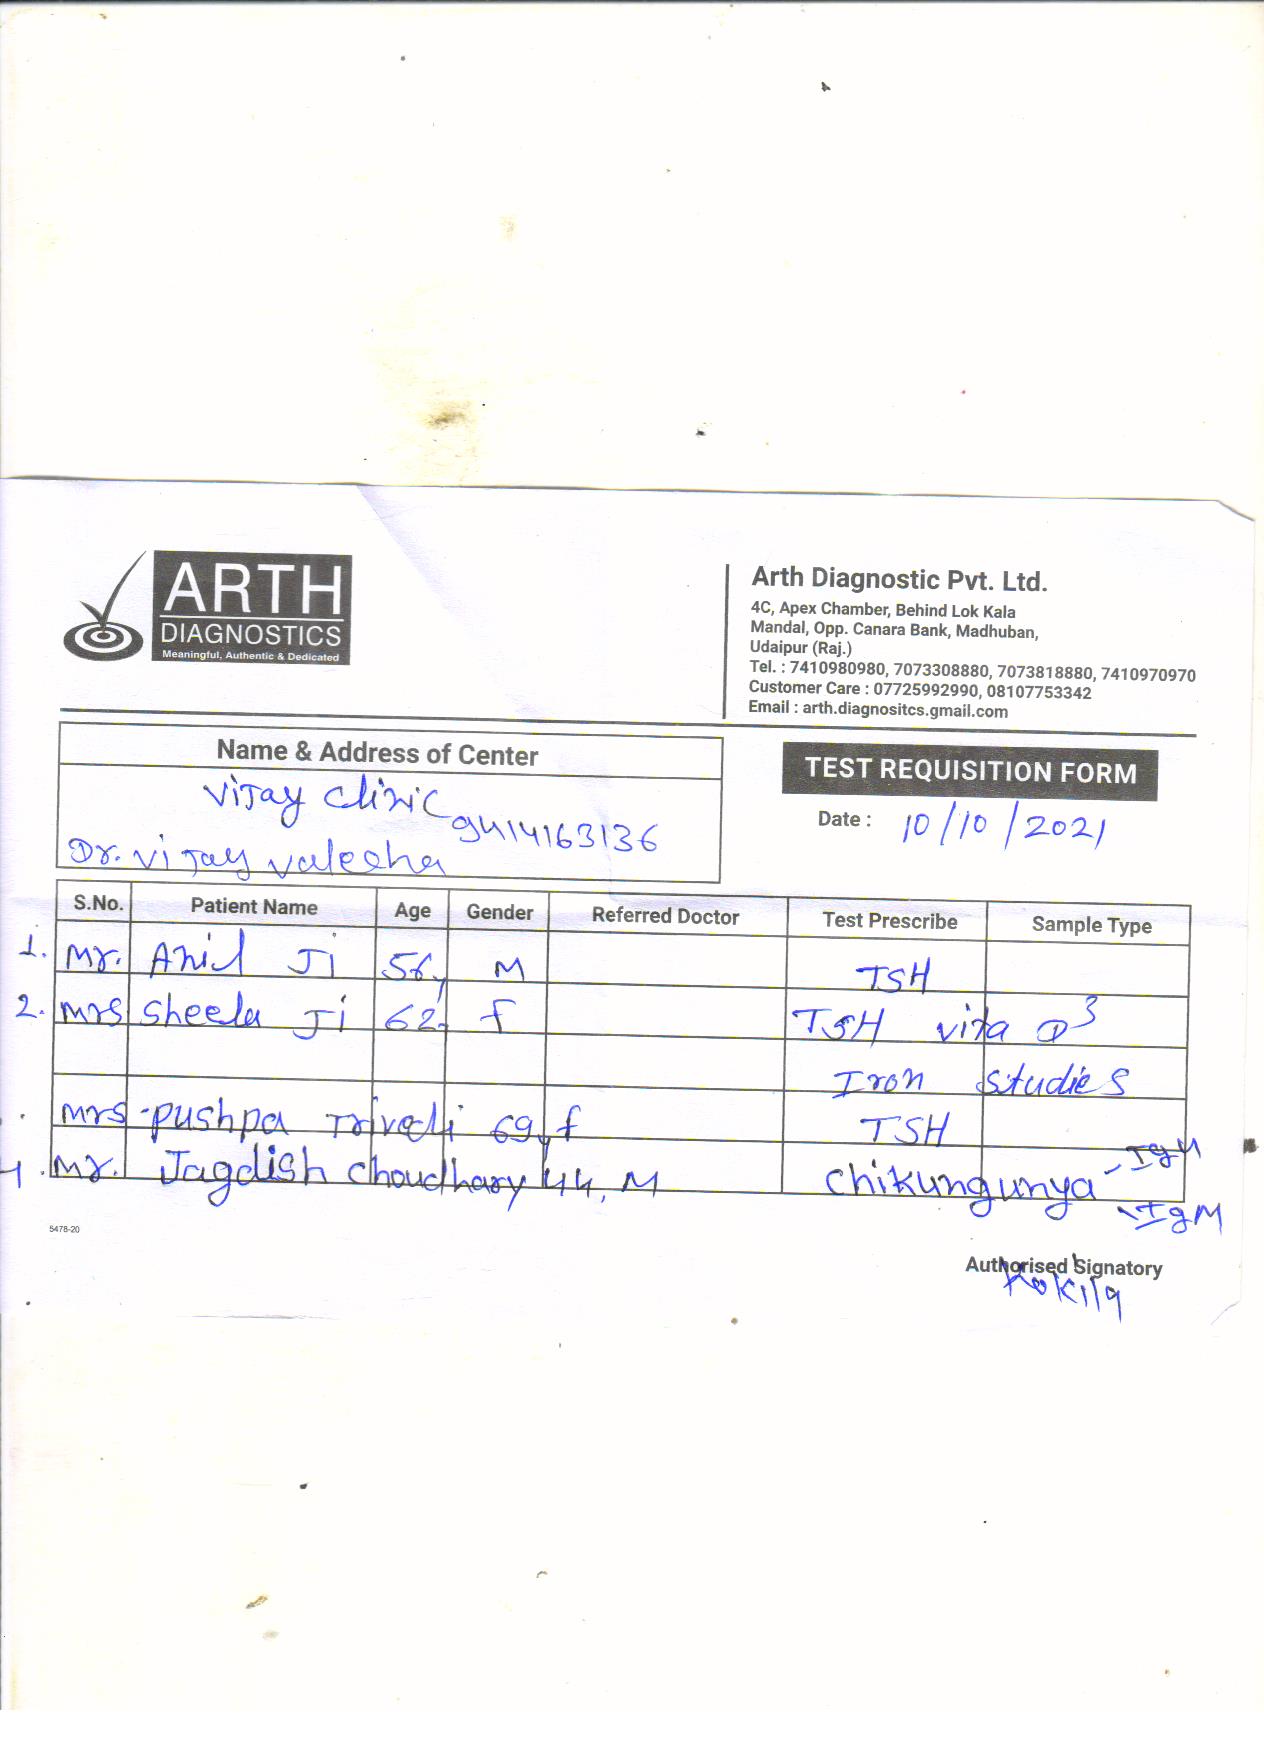 ARTH
DIAGNOSTICS
Meaningful, Authentic & Dedicated
Arth Diagnostic Pvt. Ltd.
4C, Apex Chamber, Behind Lok Kala
Mandal, Opp. Canara Bank, Madhuban,
Udaipur (Raj.)
Tel. : 7410980980, 7073308880, 7073818880, 7410970970
Customer Care : 07725992990, 08107753342
Email : arth.diagnositcs.gmail.com
Name & Address of Center
Vijay Clinic
9414163136
Dr. Vijay Valecha
TEST REQUISITION FORM
Date : 10/10/2021
S.No. Patient Name Age Gender Referred Doctor Test Prescribe Sample Type
1. Mr. Anil Ji 56, M TSH
2. Mrs Sheela Ji 62, F TSH vita D3
Iron studies
Mrs - Pushpa Trivedi 69, f TSH
4. Mr. Jagdish Choudhary 44, M Chikungunya - IgM
- IgM
5478-20
Authorised Signatory
Kokila